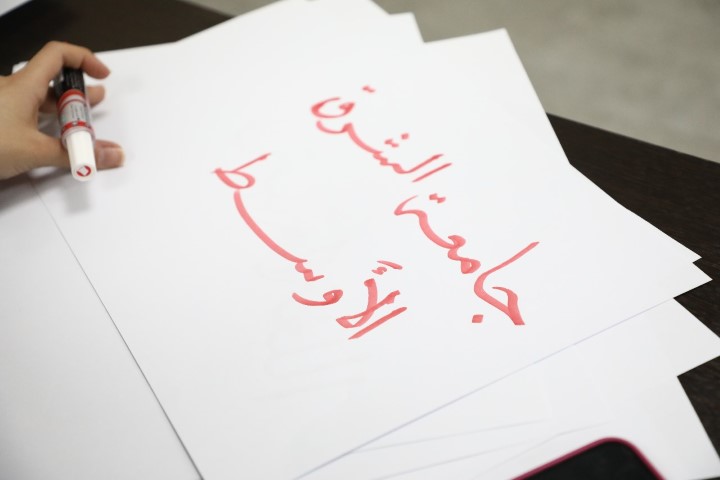 جامعة الشرق
الأوسط